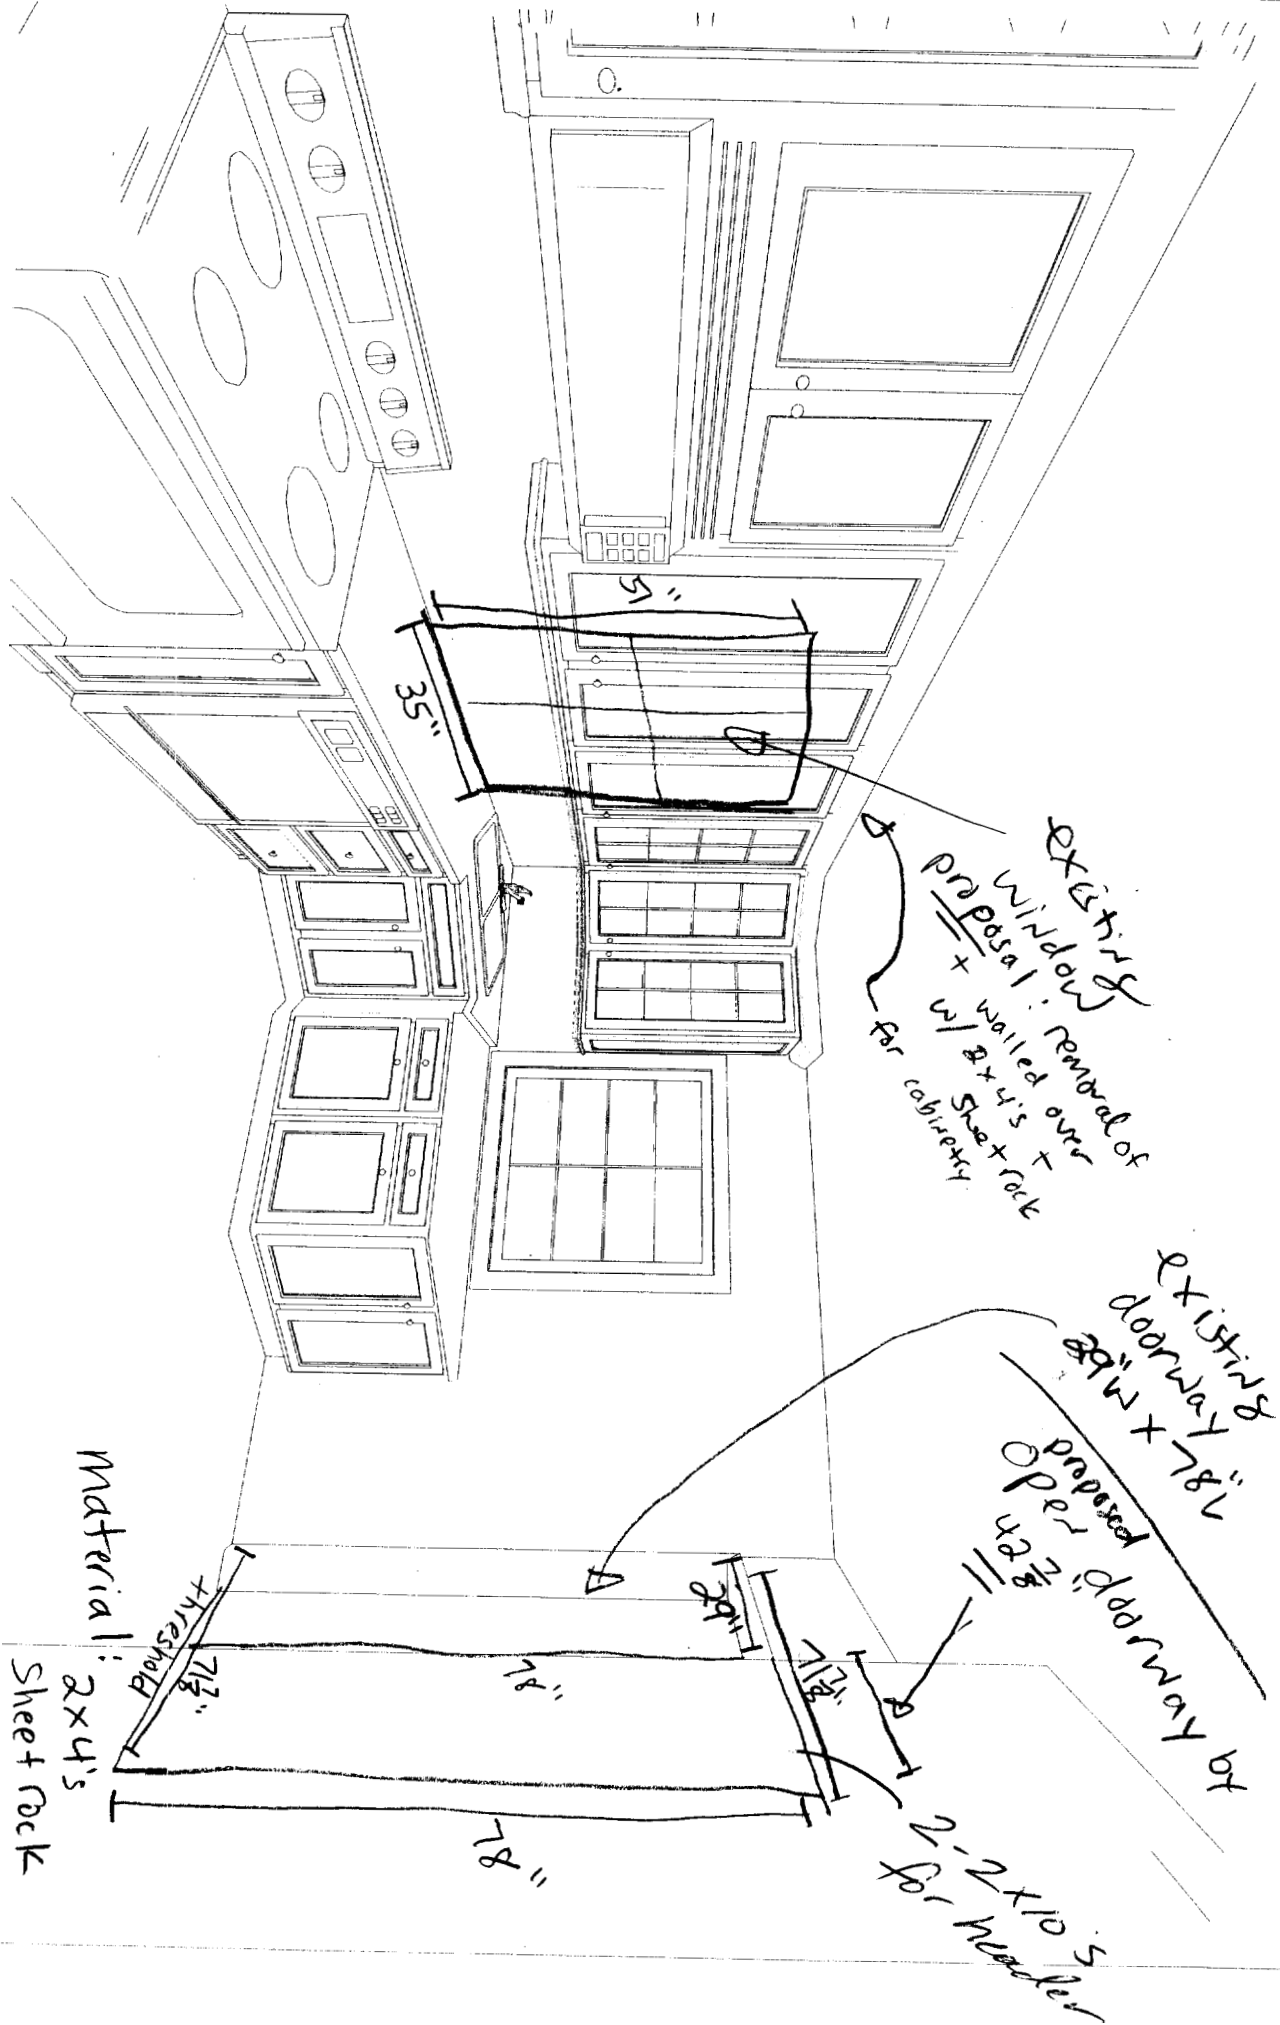 existing
window
proposal: removal of
+ walled over
w/ 2x4's +
Sheet rock
for cabinetry
51"
35"
existing
doorway
29"w x 78"
proposed
Open doorway by
42 7/8"
29"
71 7/8"
78"
78"
threshold
71 7/8"
2-2x10's
for header
Material: 2x4's
Sheet Rock